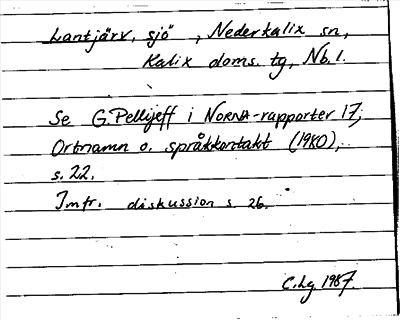 Lantjärv, sjö, Nederkalix sn,
Kalix doms. tg, Nb. l.
Se G. Pellijeff i NORNA-rapporter 17;
Ortnamn o. språkkontakt (1980),
s. 22.
Jmfr. diskussion s. 26.
C. Lg. 1987.